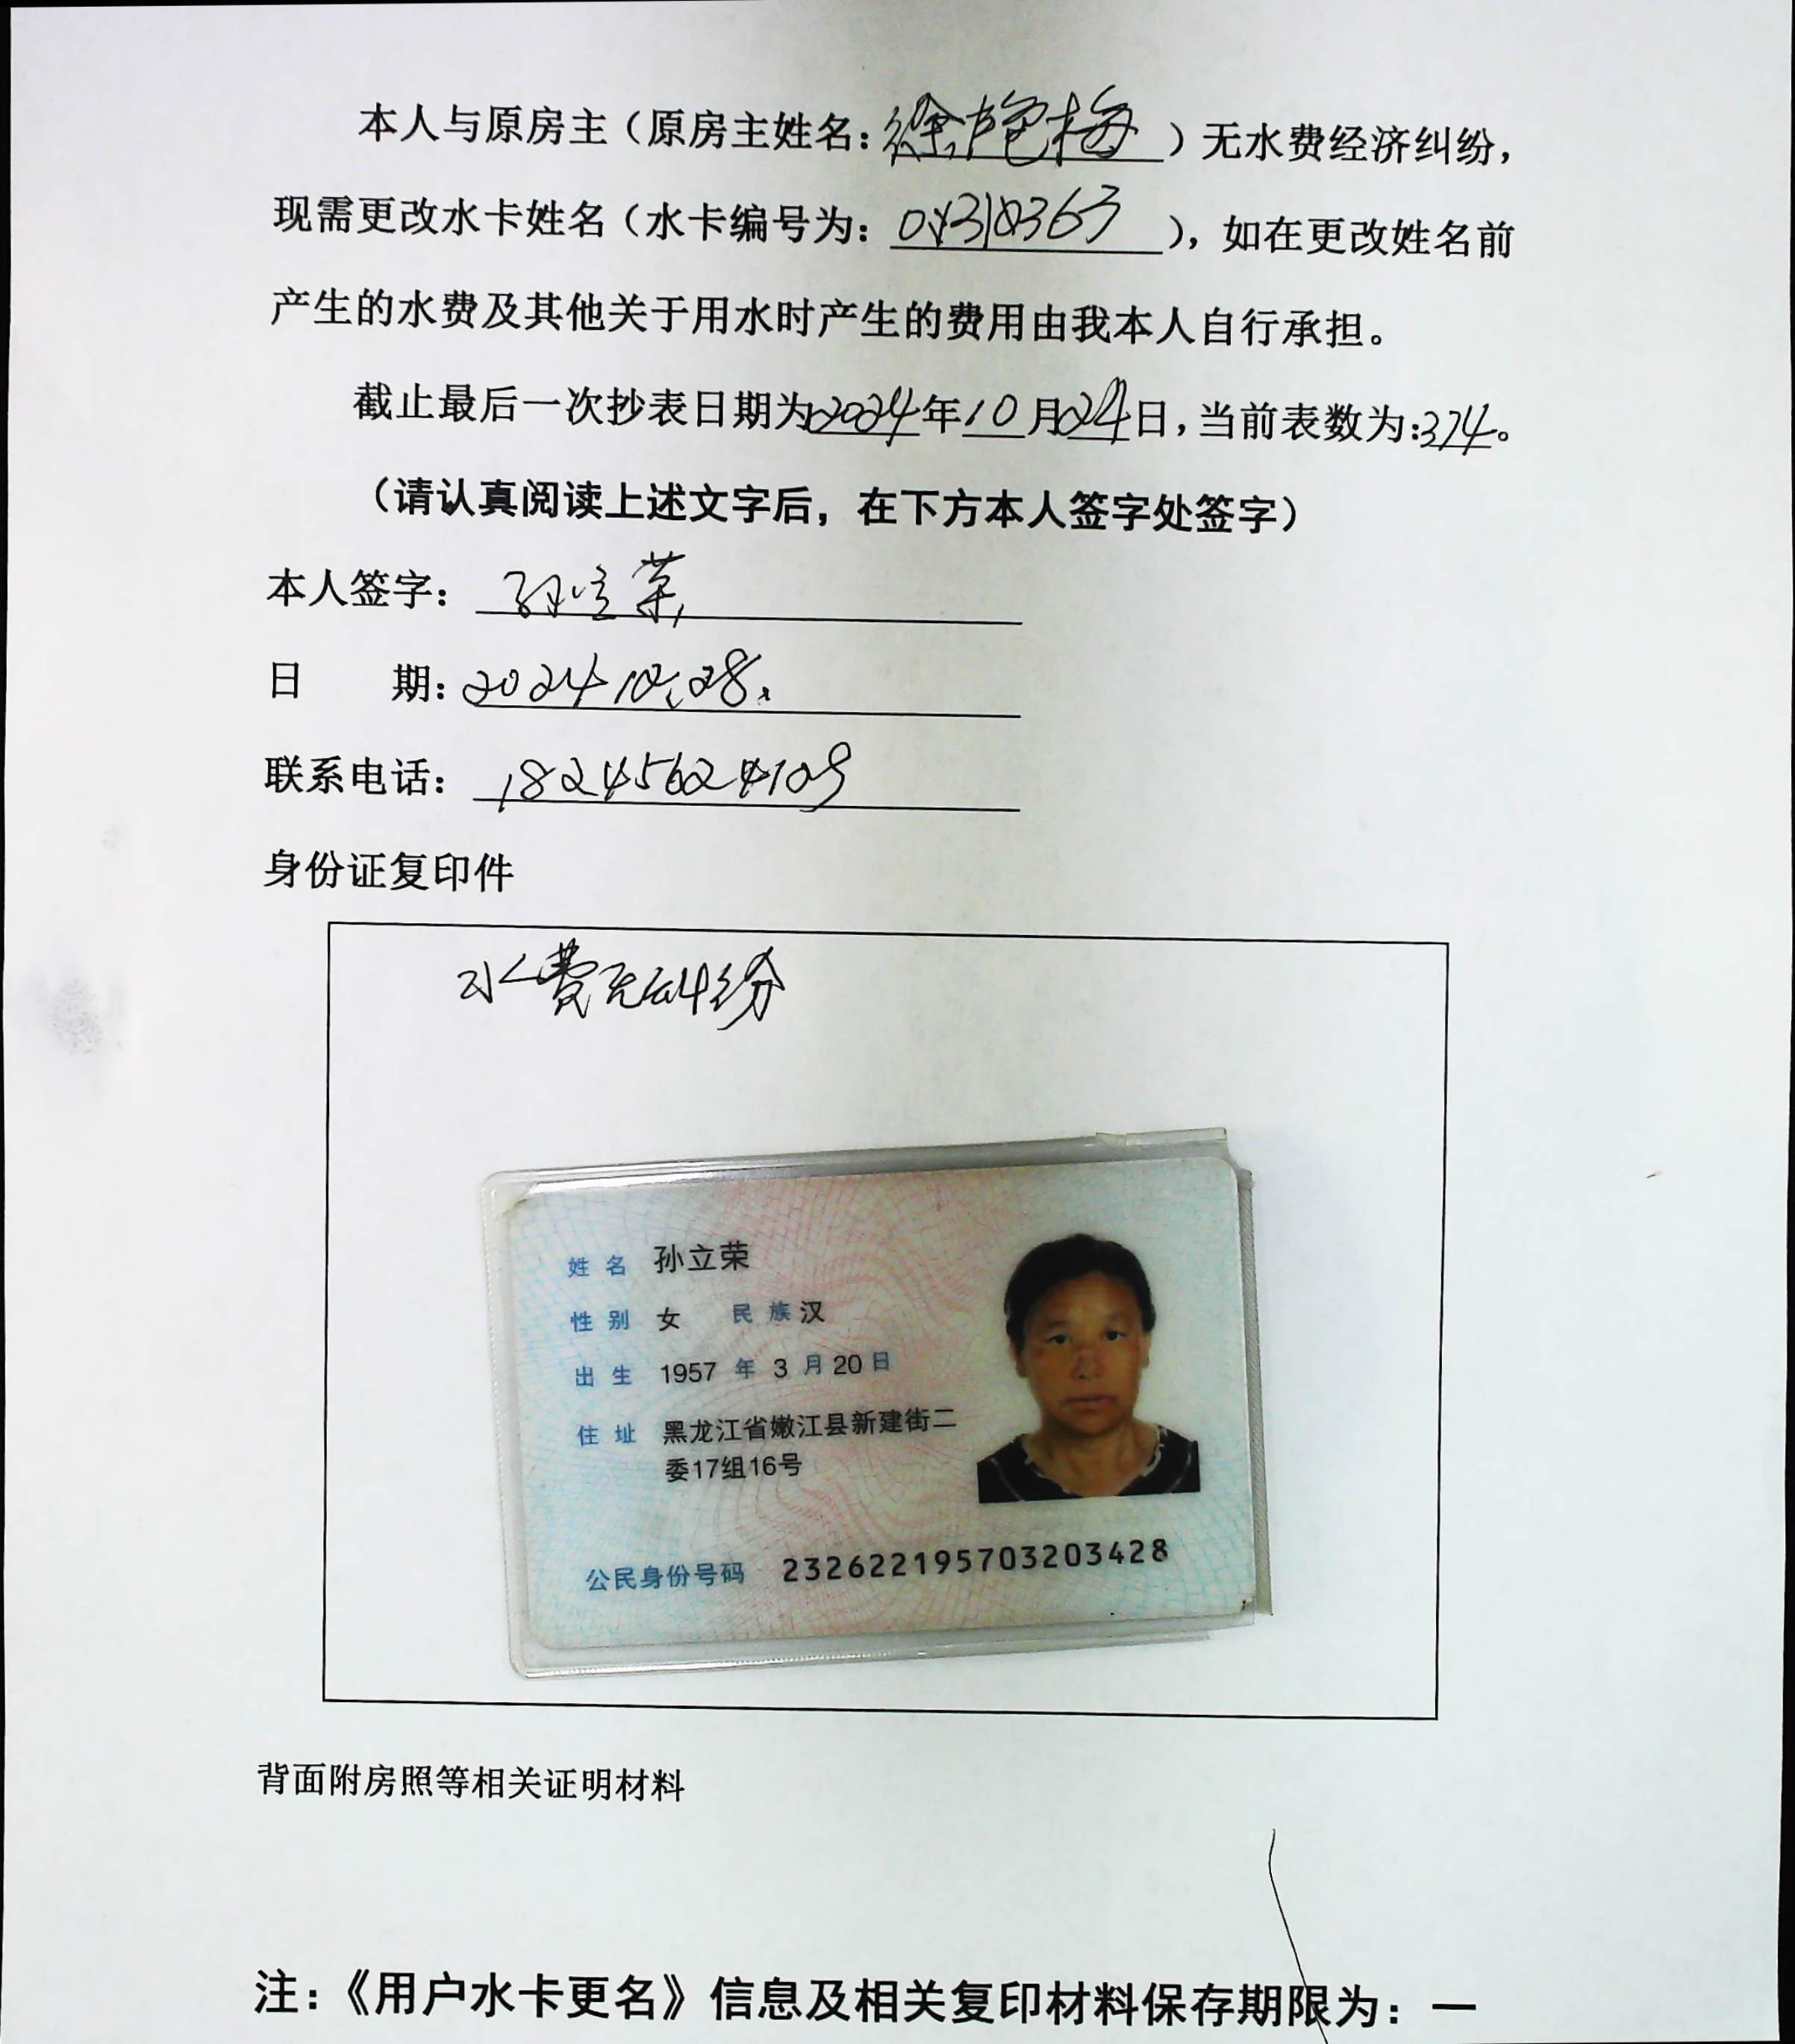 本人与原房主（原房主姓名：徐艳梅）无水费经济纠纷，
现需更改水卡姓名（水卡编号为：），如在更改姓名前
产生的水费及其他关于用水时产生的费用由我本人自行承担。
截止最后一次抄表日期为2024年10月24日，当前表数为：374。
（请认真阅读上述文字后，在下方本人签字处签字）
本人签字：孙立荣
日 期：2024 10.28.
联系电话：18245624109
身份证复印件
水费无纠纷
姓名 孙立荣
性别 女 民族 汉
出生 1957 年 3 月 20 日
住址 黑龙江省嫩江县新建街二
委17组16号
公民身份号码 232622195703203428
背面附房照等相关证明材料
注：《用户水卡更名》信息及相关复印材料保存期限为：一